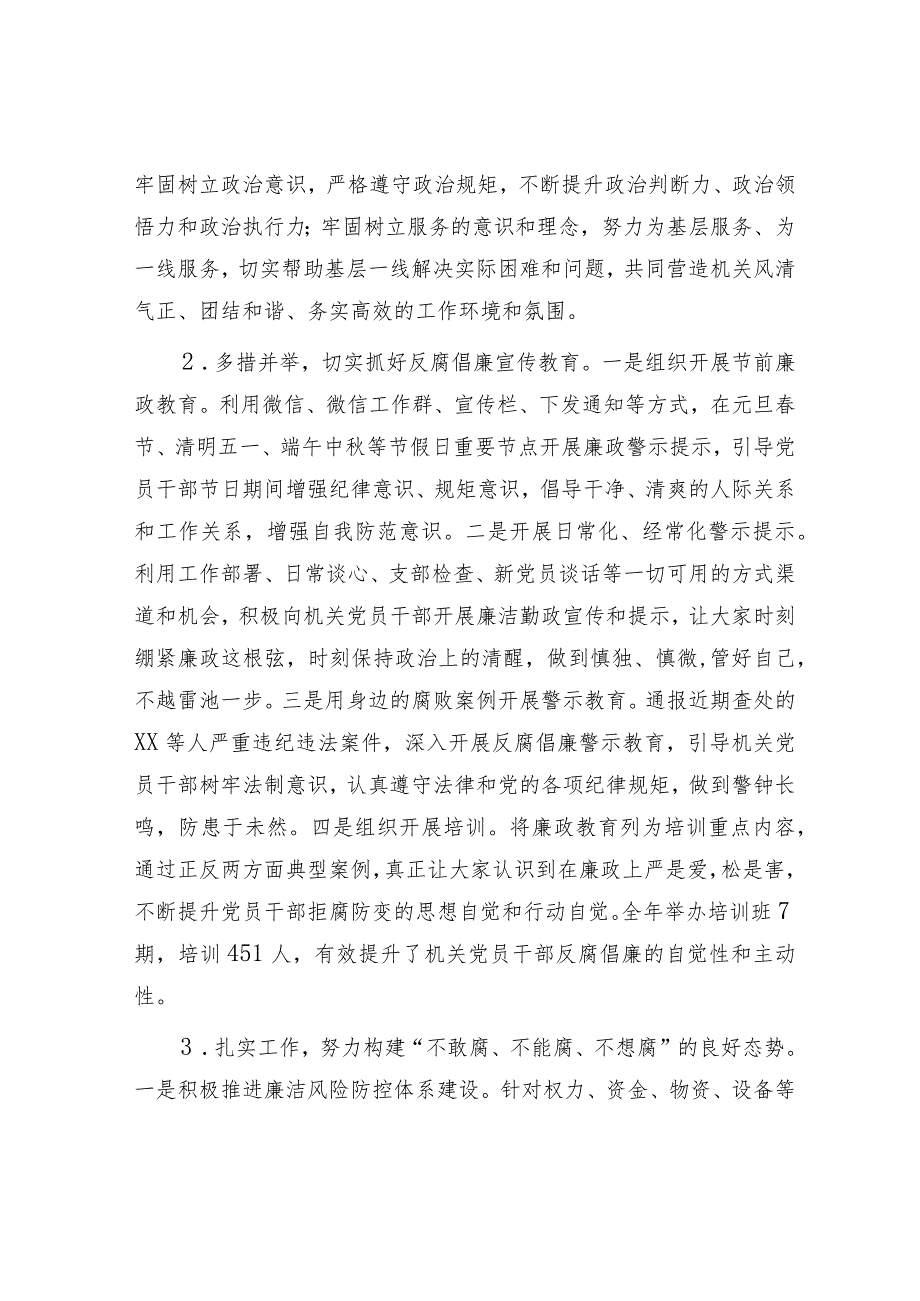 牢固树立政治意识，严格遵守政治规矩，不断提升政治判断力、政治领
悟力和政治执行力；牢固树立服务的意识和理念，努力为基层服务、为
一线服务，切实帮助基层一线解决实际困难和问题，共同营造机关风清
气正、团结和谐、务实高效的工作环境和氛围。
2.多措并举，切实抓好反腐倡廉宣传教育。一是组织开展节前廉
政教育。利用微信、微信工作群、宣传栏、下发通知等方式，在元旦春
节、清明五一、端午中秋等节假日重要节点开展廉政警示提示，引导党
员干部节日期间增强纪律意识、规矩意识，倡导干净、清爽的人际关系
和工作关系，增强自我防范意识。二是开展日常化、经常化警示提示。
利用工作部署、日常谈心、支部检查、新党员谈话等一切可用的方式渠
道和机会，积极向机关党员干部开展廉洁勤政宣传和提示，让大家时刻
绷紧廉政这根弦，时刻保持政治上的清醒，做到慎独、慎微,管好自己，
不越雷池一步。三是用身边的腐败案例开展警示教育。通报近期查处的
XX等人严重违纪违法案件，深入开展反腐倡廉警示教育，引导机关党
员干部树牢法制意识，认真遵守法律和党的各项纪律规矩，做到警钟长
鸣，防患于未然。四是组织开展培训。将廉政教育列为培训重点内容，
通过正反两方面典型案例,真正让大家认识到在廉政上严是爱,松是害，
不断提升党员干部拒腐防变的思想自觉和行动自觉。全年举办培训班7
期，培训451人，有效提升了机关党员干部反腐倡廉的自觉性和主动
性。
3.扎实工作，努力构建“不敢腐、不能腐、不想腐”的良好态势。
一是积极推进廉洁风险防控体系建设。针对权力、资金、物资、设备等